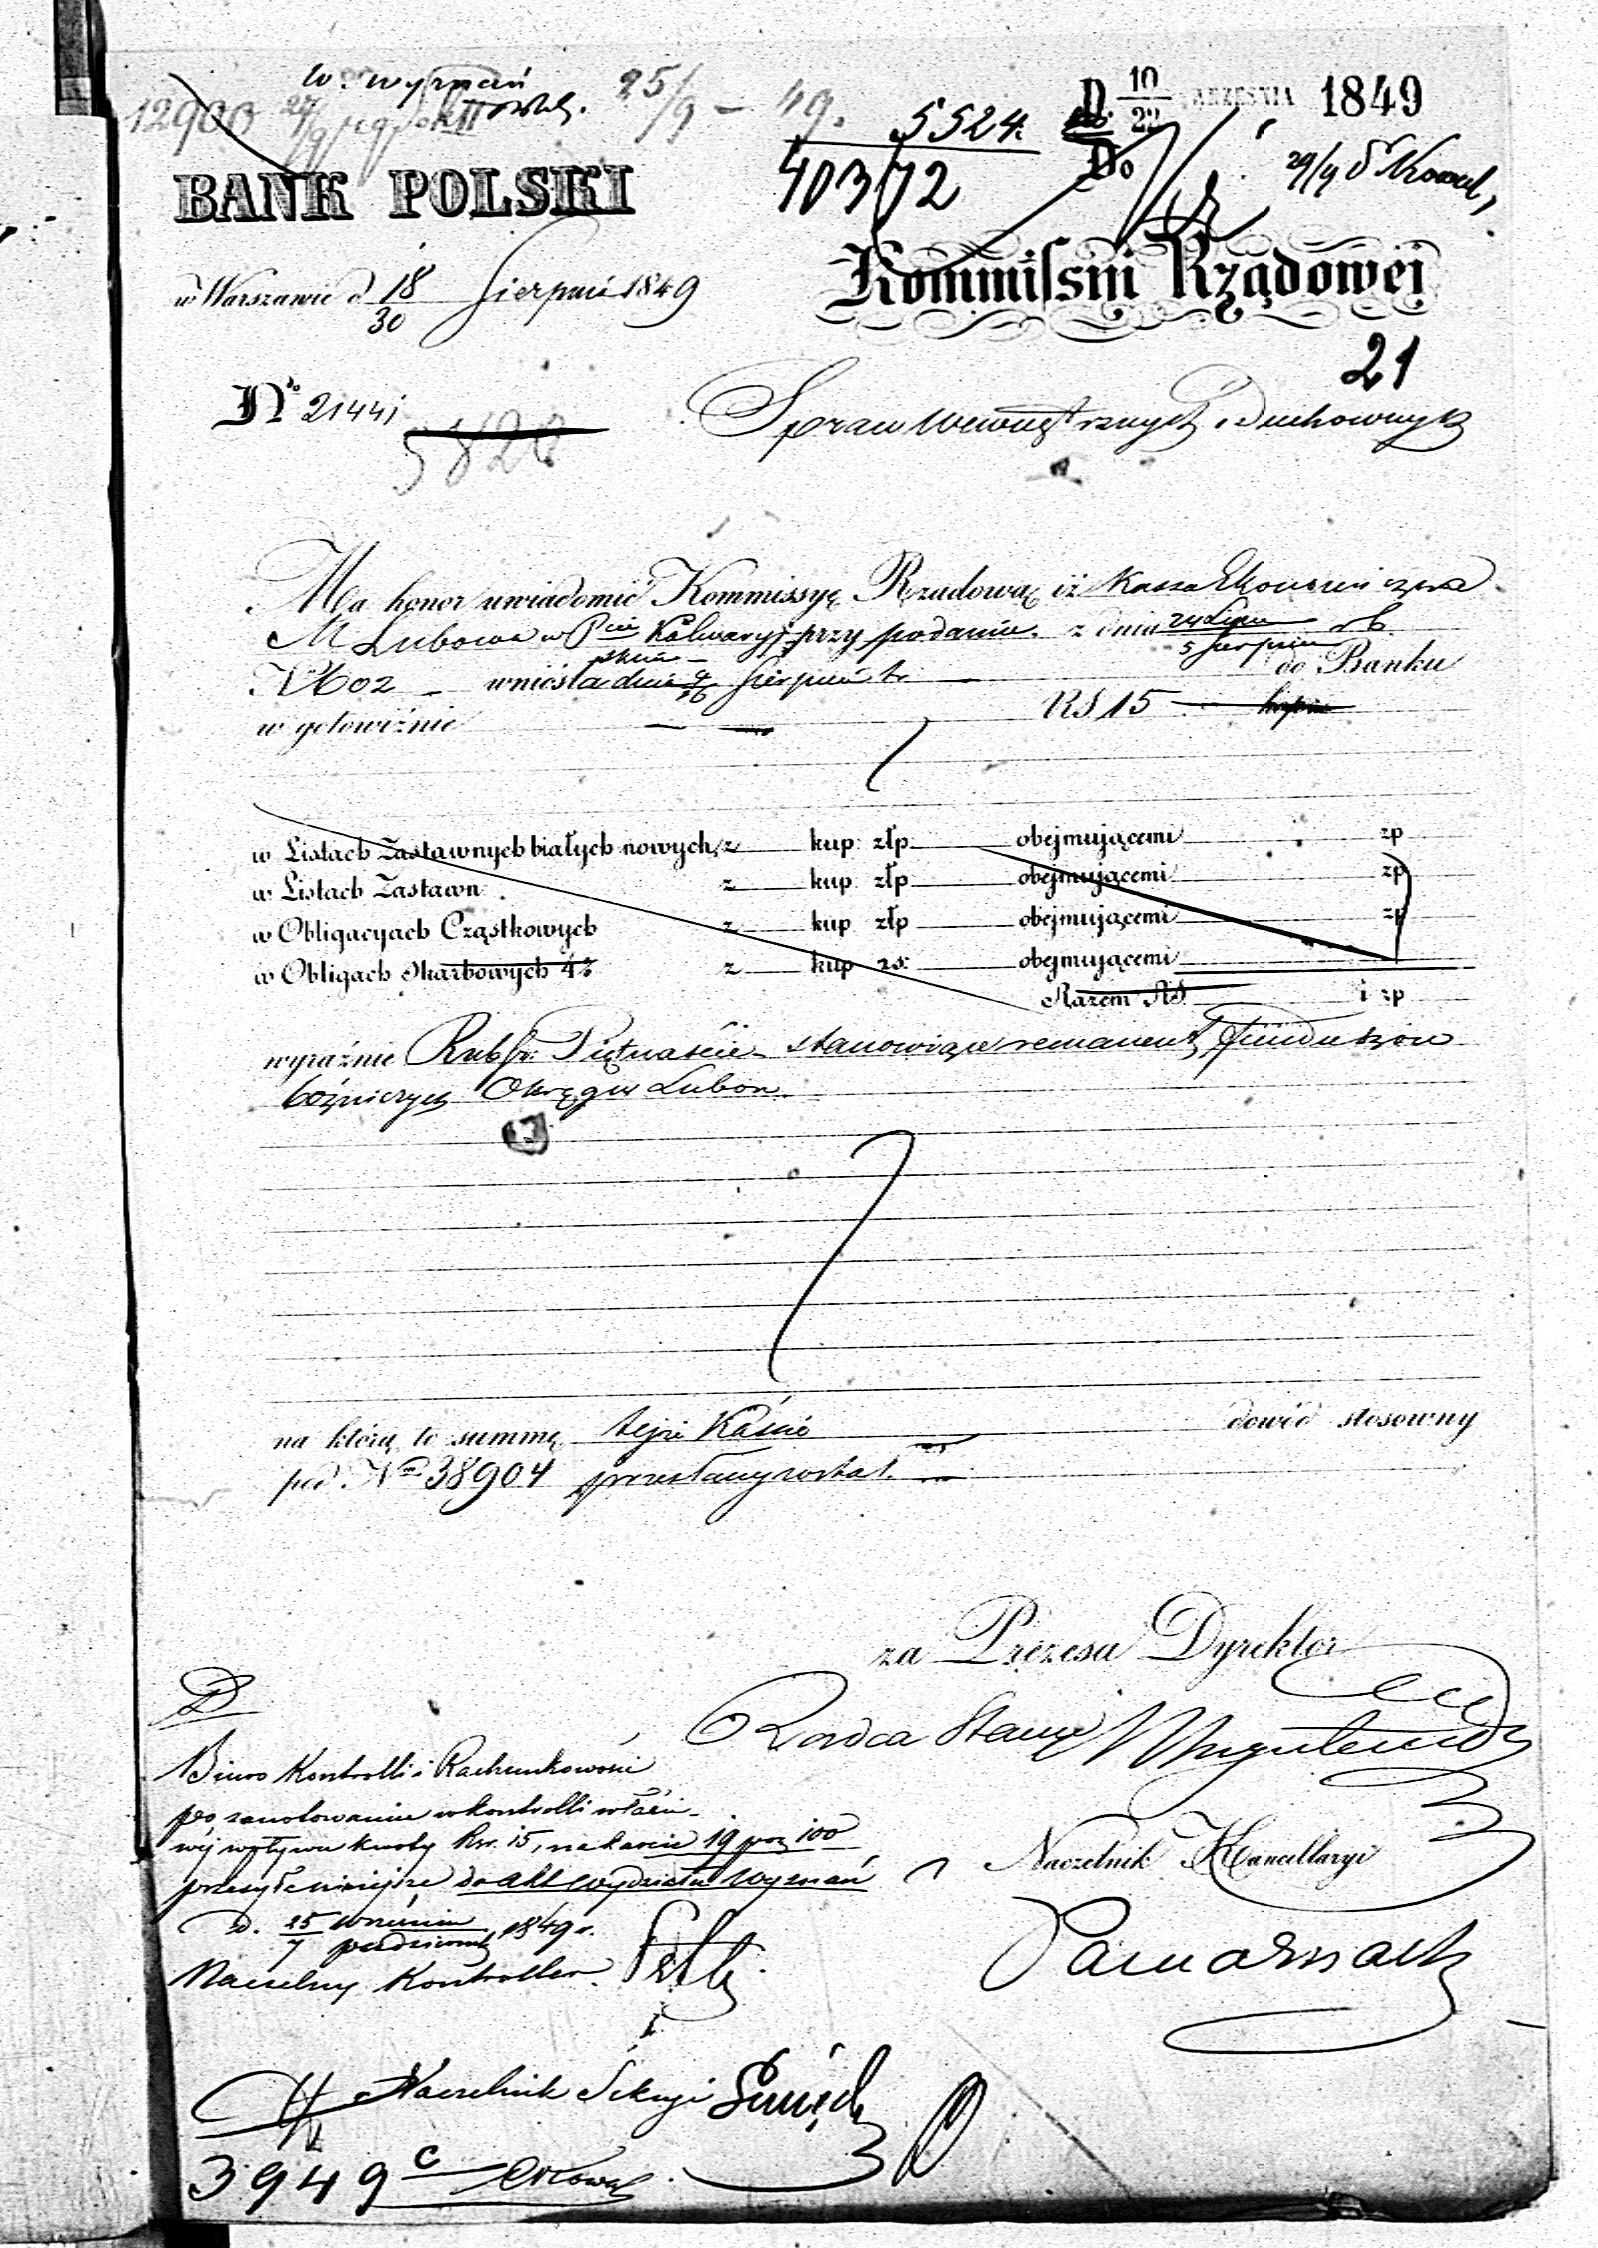 w. wyznań
12900
25/9 – 49.
5524.
D 10/22 WRZEŚNIA 1849
40372
Do
BANK POLSKI
w Warszawie d 18/30 Sierpnia 1849
Kommissyi Rządowej
21
No 21441
5820
Spraw Wewnętrznych i Duchownych
Ma honor uwiadomić Kommissyę Rządową iż Kassa Ekonomiczna
M Lubowa w Pcie Kalwaryj przy podaniu z dnia 24 Lipca / 5 Sierpnia rb.
skim
N 602 wniosła dnia 4/16 Sierpnia br do Banku
w gotowiźnie RS 15 kop
w Listach Zastawnych białych nowych z kup złp obejmującemi zp
w Listach Zastawn z kup złp obejmującemi zp
w Obligacyach Cząstkowych z kup złp obejmującemi zp
w Obligach Skarbowych 4% z kup rs: obejmującemi
Razem RS i zp
wyraźnie Rub sr. Piętnaście stanowiące remanent funduszów
bóżniczych Okręgu Lubow.
na którą to summę tejże Kassie dowód stosowny
pod No 38904 przesłany został.
za Prezesa Dyrektor
Radca Stanu
D
Biuro Kontrolli i Rachunkowości
po zanotowaniu w kontrolli właści-
wéj wpływu kwoty Rsr. 15, na karcie 19 poz 100
przesyła niniejsze do akt wydziału wyznań
d. 25 września / 7 października 1849 r.
Naczelnik Kancellaryi
Naczelny Kontroller
Naczelnik Sekcyi
3949 c